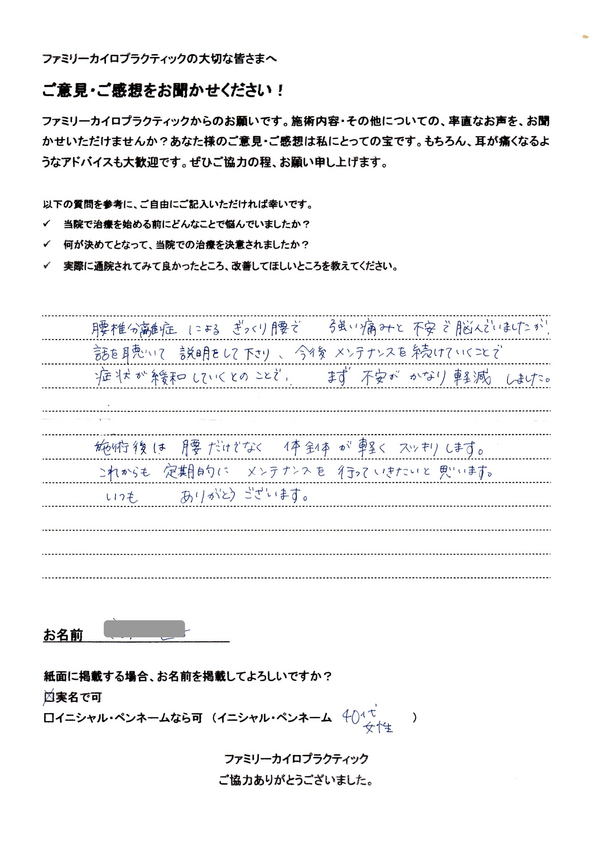 ファミリーカイロプラクティックの大切な皆さまへ
ご意見・ご感想をお聞かせください！
ファミリーカイロプラクティックからのお願いです。施術内容・その他についての、率直なお声を、お聞
かせいただけませんか？あなた様のご意見・ご感想は私にとっての宝です。もちろん、耳が痛くなるよ
うなアドバイスも大歓迎です。ぜひご協力の程、お願い申し上げます。
以下の質問を参考に、ご自由にご記入いただければ幸いです。
✓ 当院で治療を始める前にどんなことで悩んでいましたか？
✓ 何が決めてとなって、当院での治療を決意されましたか？
✓ 実際に通院されてみて良かったところ、改善してほしいところを教えてください。
腰椎分離症 による ぎっくり腰で 強い痛みと 不安で悩んでいましたが、
話を聴いて 説明をして下さり、今後 メンテナンスを続けていくことで
症状が緩和していくとのことで、 まず 不安が かなり 軽減 しました。
施術後は 腰だけでなく 体全体が軽く スッキリします。
これからも 定期的に メンテナンスを 行っていきたいと思います。
いつも ありがとうございます。
お名前
紙面に掲載する場合、お名前を掲載してよろしいですか？
☒実名で可
□イニシャル・ペンネームなら可 （イニシャル・ペンネーム 40代
女性 ）
ファミリーカイロプラクティック
ご協力ありがとうございました。